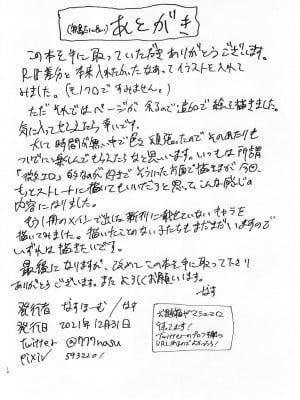 あとがき
この本を手に取っていただきありがとうございます。
R-18差分と本来入れたかったなあってイラストを入れて
みました。(モノクロですみません。)
ただそれではページが余るので追加で絵を描きました。
気に入ってもらえたら幸いです。
大して時間が無い中で色々頑張ったのでそのあたりも
ついでに楽しんでもらえたらなと思います。いつもは所謂
「微エロ」的なのが好きでそういった方面で描きますが今回、
もっとストレートに描いてもいいだろうと思ってこんな感じの
内容になりました。
もう1冊のメインで出した新刊に載せていないキャラを
描いてみました。描いたことのない子たちもまだまだいますので
いずれは描きたいです。
最後になりますが、改めてこの本を手に取って下さり
ありがとうございます。またよろしくお願いします。
なす
発行者 なすほーむ/なす
発行日 2021年12月31日
Twitter @777nasu
Pixiv 5932201
作ってます!
Twitterのプロフ欄に
URLあるのでよかったら!